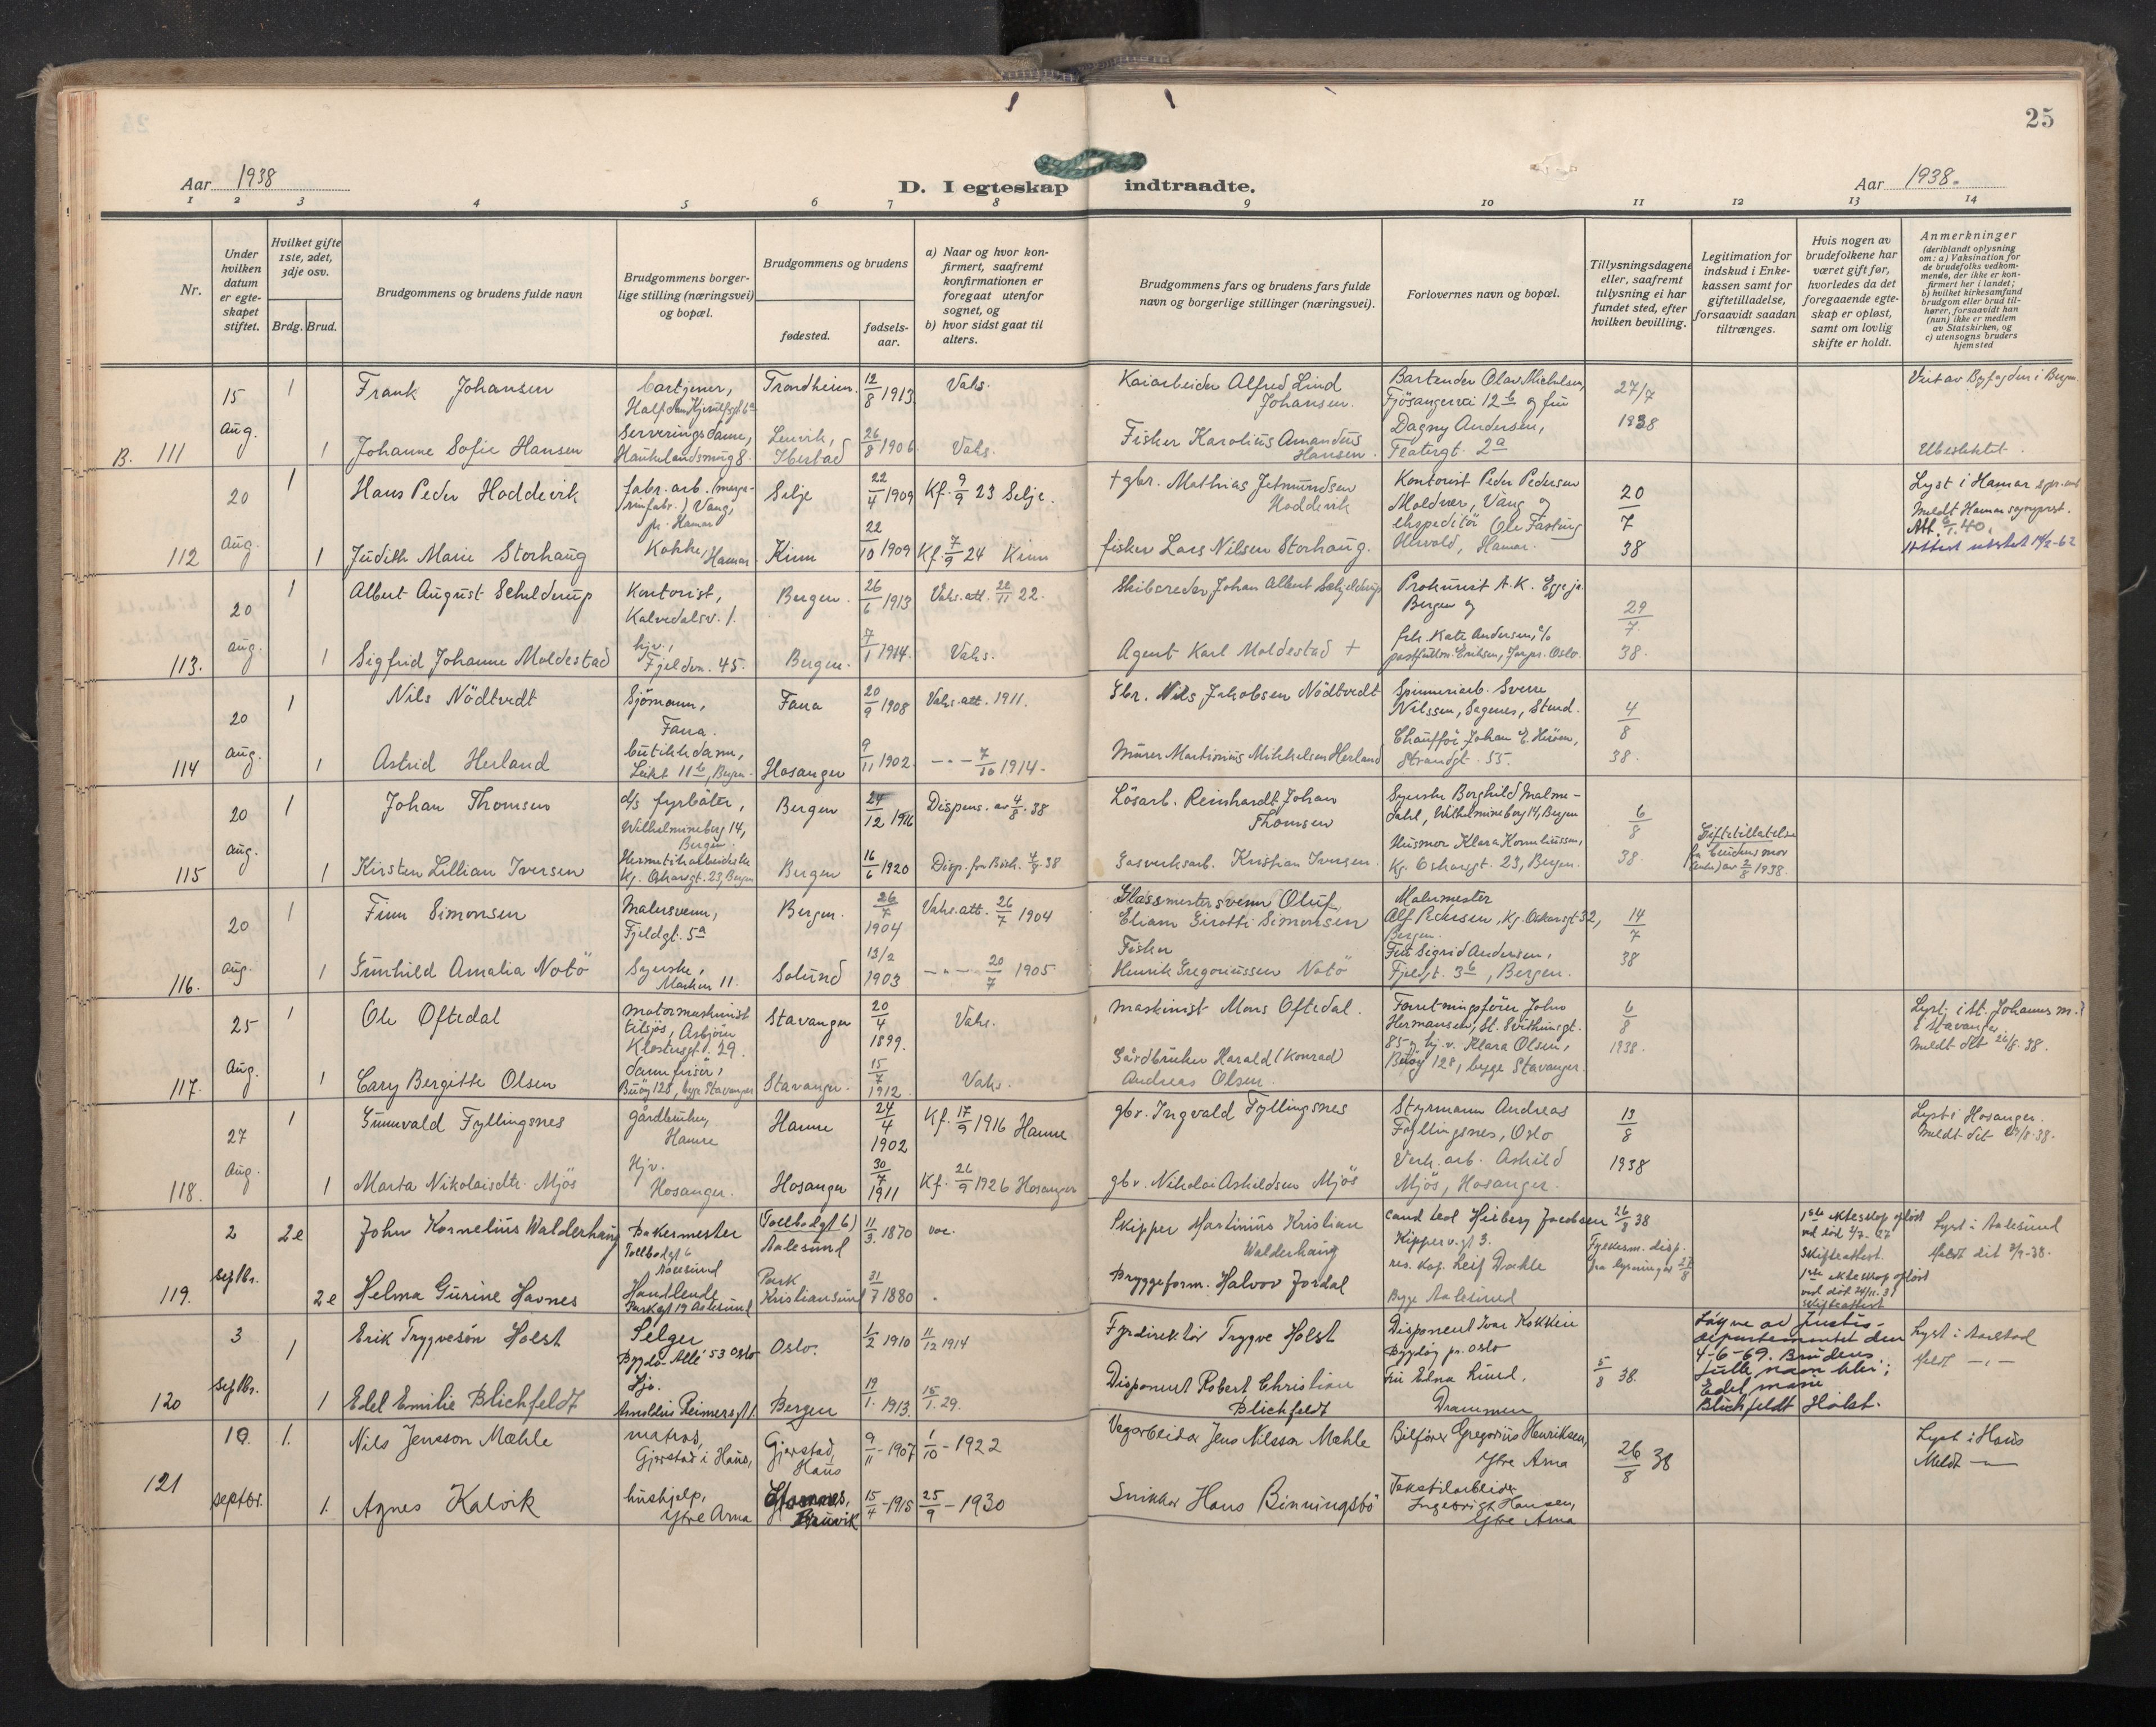 25
Aar 1938
D. I egteskap indtraadte.
Aar 1938.
1 2 3 4 5 6 7 8 9 10 11 12 13 14
Nr.
Under hvilken datum er egteskapet stiftet.
Hvilket gifte 1ste, 2det, 3dje osv.
Brdg. Brud.
Brudgommens og brudens fulde navn
Brudgommens borgerlige stilling (næringsvei) og bopæl.
Brudgommens og brudens
fødested.
fødselsaar.
a) Naar og hvor konfirmert, saafremt konfirmationen er foregaat utenfor sognet, og
b) hvor sidst gaat til alters.
Brudgommens fars og brudens fars fulde navn og borgerlige stillinger (næringsvei).
Forlovernes navn og bopæl.
Tillysningsdagene eller, saafremt tillysning ei har fundet sted, efter hvilken bevilling.
Legitimation for indskud i Enkekassen samt for giftetilladelse, forsaavidt saadan tiltrænges.
Hvis nogen av brudefolkene har været gift før, hvorledes da det foregaaende egteskap er opløst, samt om lovlig skifte er holdt.
Anmerkninger
(deriblandt oplysning om: a) Vaksination for de brudefolks vedkommende, der ikke er konfirmert her i landet; b) hvilket kirkesamfund brudgom eller brud tilhører, forsaavidt han (hun) ikke er medlem av Statskirken, og c) utensogns bruders hjemsted
B. 111
15 Aug.
1 Frank Johansen
Trondheim. 12/8 1913 Vaks.
Kaiarbeider Alfred Lind Johansen.
Bartender Olav Michelsen, Fjøsangervei 12 b og fru
27/7 1938
1 Johanne Sofie Hansen
Serveringsdame, Haukelandsveug 8.
Lenvik, Ibestad 26/8 1906 Vaks.
Fisker Karolius Amandus Hansen.
Dagny Andersen, Teatergt. 2a
Ubeslektet.
112
20 Aug.
1 Hans Peder Hoddevik
fabr. arb. Vang, pr. Hamar
Selje 22/4 1909 Kf. 9/9 23 Selje.
+ gbr. Mathias Jetmundsen Hoddevik
Kontorist Peder Pedersen Moldver, Vang og
20/7 38
Lyst i Hamar
Meldt Hamar sogneprest.
1 Judith Marie Storhaug
Kokke, Hamar
Kinn 22/10 1909 Kf. 7/9 24 Kinn
fisker Lars Nilsen Storhaug.
ekspeditør Ole Fasting Hamar.
113.
20 aug.
1 Albert August Schelderup
Kontorist, Kalvedalsv. 1.
Bergen. 26/6 1913 Vaks. att. 22/11 22.
Skibsreder Johan Albert Schjelderup
Prokurist A. K. Egge jr. Bergen og
29/7. 38.
1 Sigfrid Johanne Moldestad
hjv., Fjeldvn. 45.
Bergen. 7/1 1914. Vaks.
Agent Karl Moldestad +
frk. Kate Andersen, c/o Eriksen, Oslo.
114
20 aug.
1 Nils Nödtvedt
Sjömann, Fana.
Fana 20/9 1908 Vaks. att. 1911.
Gbr. Nils Jakobsen Nödtvedt
Spinneriarb. Sverre Nilssen, Sagenes, Stend.
4/8 38.
1 Astrid Herland
butikkdame, Bergen.
Hosanger 9/11 1902 - - - 7/10 1914.
Murer Martinius Mikkelsen Herland
Chauffør Johan E. Strandgt. 55.
115
20 aug.
1 Johan Thomsen
d/s fyrbøter, Wilhelmineborg 14, Bergen.
Bergen 24/12 1916 Dispens. av 4/8 38
Lösarb. Reinhardt Johan Thomsen
Syerske Borghild Malmedahl, Wilhelmineborg 14, Bergen
6/8 38
Giftetillatelse fra brudens mor av 2/8 1938.
1 Kirsten Lillian Iversen
Hermetikkarbeiderske Kg. Oskarsgt. 23, Bergen
Bergen 16/6 1920 Disp. fra Bisk. 4/8 38
Gasverksarb. Kristian Iversen.
Husmor Klara Korneliussen, Kg. Oskarsgt. 23, Bergen.
116.
20 aug.
1 Finn Simonsen
Malersvenn, Fjeldgt. 5a
Bergen. 26/7 1904 Vaks. att. 26/7 1904
Glassmestersvenn Oluf Eliam Girotti Simonsen
Malermester Alf Pedersen, Kg. Oskarsgt 32, Bergen.
14/7 38
1 Gunhild Amalia Notö
Syerske, Marken 11.
Solund 13/2 1903 - - - 20/7 1905
Fisker Henrik Gregoriussen Notö
Fru Sigrid Andersen, Fjeldgt. 3b, Bergen.
117.
25 Aug.
1 Ole Oftedal
motormaskinist tilsjøs, Klostergt. 29.
Stavanger 20/4 1899. Vaks.
Maskinist Mons Oftedal.
Forretningsfører John Hermansen, St. Svithunsgt. 85 og
6/8 1938.
Lyst i St. Johannes m. i Stavanger.
Meldt dit 26/8. 38.
1 Cary Bergitte Olsen
damefrisør, Buøy 128, bygn Stavanger
Stavanger. 15/7 1912 Vaks.
Gårdbruker Harald (Konrad) Andreas Olsen.
hj. v. Klara Olsen, Buøy 128, begge Stavanger.
118.
27 Aug.
1 Gunnvald Fyllingsnes
gårdbruker, Hamre
Hamre 24/4 1902 Kf. 17/9 1916 Hamre
gbr. Ingvald Fyllingsnes
Styrmann Andreas Fyllingsnes, Oslo
13/8 1938
Lyst i Hosanger.
Meldt dit 29/8. 38.
1 Marta Nikolaisdtr. Mjös
Hjv. Hosanger.
Hosanger 30/7 1911 Kf. 26/9 1926 Hosanger
gbr. Nikolai Askildsen Mjös
Verk. arb. Askild Mjös, Hosanger.
119.
2 septbr.
2e John Kornelius Walderhaug
Bakermester Tollbodgt 6 Aalesund
(Tollbodgt 6) Aalesund 11/3. 1870 vac.
Skipper Martinius Kristian Walderhaug
cand teol Hieberg Jacobsen Kipperv. gt 3.
26/8 38 Fylkesm. disp. fra lysninger
1ste ekteskap opløst ved død 2/7-27 Skifteattest.
Lyst i Aalesund
Meldt dit 3/9-38.
2e Helma Gurine Havnes
Handlende Parkgt 19 Aalesund
Park Kristiansund 31/7 1880
Bryggeform. Halvor Jordal
res. kap. Leif Dahle
Begge Aalesund
1ste ekteskap opløst ved død 24/11. 31 Skifteattest
120
3 septbr.
1 Erik Trygvesön Holst
Selger Bygdø Allé 53 Oslo
Oslo. 1/2 1910 11/12 1914
Fyrdirektör Trygve Holst
Disponent Ivar Kokkin Bygdøy pr. Oslo
5/8 38.
Løyve av Justisdepartementet den 4-6-69. Brudens fulle navn blir: Edel Marie Blichfeldt Holst.
Lyst i Aarstad
Meldt - " -
1 Edel Emilie Blichfeldt
Hjv. Arnoldus Reimersgt 1.
Bergen 19/1. 1913. 15/1. 29.
Disponent Robert Christian Blichfeldt
Fru Edna Lund, Drammen
121
10. septbr.
1. Nils Jensson Mæhle
matros, Gjerstad i Haus,
Gjerstad, Haus 9/11 - 1907 1/10 - 1922
Vegarbeider Jens Nilsson Mæhle
Bilfører Gregorius Henriksen, Ytre Arna
26/8 38
Lyst i Haus
Meldt -"-
1. Agnes Kalvik
hushjelp, Ytre Arna
Bruvik 15/4 - 1915 25/9 - 1930
Snikker Hans Binningsbö
Tekstilarbeider Ingebrigt Hansen, Ytre Arna